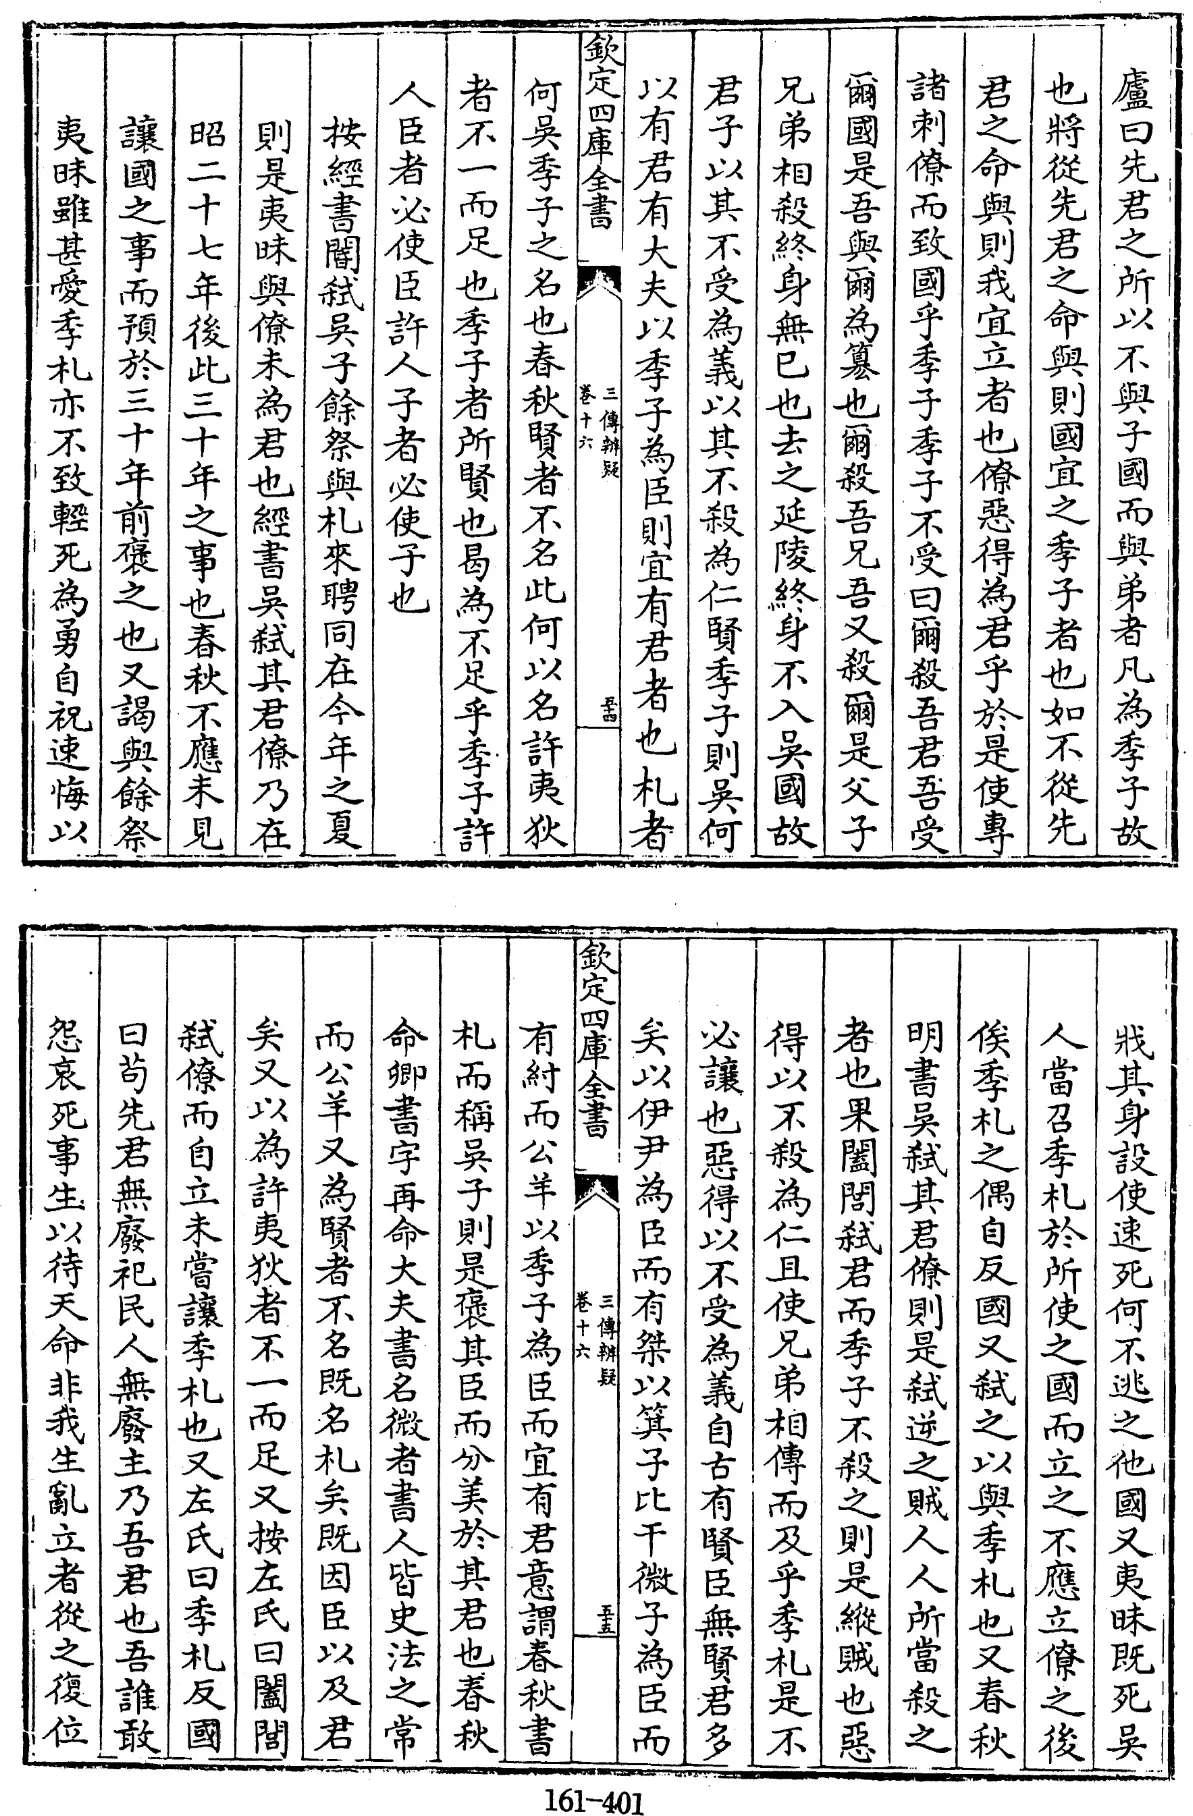 廬曰先君之所以不與子國而與弟者凡為季子故
也將從先君之命與則國宜之季子者也如不從先
君之命與則我宜立者也僚惡得為君乎於是使專
諸刺僚而致國乎季子季子不受曰爾殺吾君吾受
爾國是吾與爾為簒也爾殺吾兄吾又殺爾是父子
兄弟相殺終身無已也去之延陵終身不入吳國故
君子以其不受為義以其不殺為仁賢季子則吳何
以有君有大夫以季子為臣則宜有君者也札者
欽定四庫全書
三傳辨疑
卷十六
五十四
何吳季子之名也春秋賢者不名此何以名許夷狄
者不一而足也季子者所賢也曷為不足乎季子許
人臣者必使臣許人子者必使子也
按經書閽弑吳子餘祭與札來聘同在今年之夏
則是夷昧與僚未為君也經書吳弑其君僚乃在
昭二十七年後此三十年之事也春秋不應未見
讓國之事而預於三十年前褒之也又謁與餘祭
夷昧雖甚愛季札亦不致輕死為勇自祝速悔以
戕其身設使速死何不逃之他國又夷昧既死吳
人當召季札於所使之國而立之不應立僚之後
俟季札之偶自反國又弑之以與季札也又春秋
明書吳弑其君僚則是弑逆之賊人人所當殺之
者也果闔閭弑君而季子不殺之則是縱賊也惡
得以不殺為仁且使兄弟相傳而及乎季札是不
必讓也惡得以不受為義自古有賢臣無賢君多
矣以伊尹為臣而有桀以箕子比干微子為臣而
欽定四庫全書
三傳辨疑
卷十六
五十五
有紂而公羊以季子為臣而宜有君意謂春秋書
札而稱吳子則是褒其臣而分美於其君也春秋
命卿書字再命大夫書名微者書人皆史法之常
而公羊又為賢者不名既名札矣既因臣以及君
矣又以為許夷狄者不一而足又按左氏曰闔閭
弑僚而自立未嘗讓季札也又左氏曰季札反國
曰苟先君無廢祀民人無廢主乃吾君也吾誰敢
怨哀死事生以待天命非我生亂立者從之復位
161-401